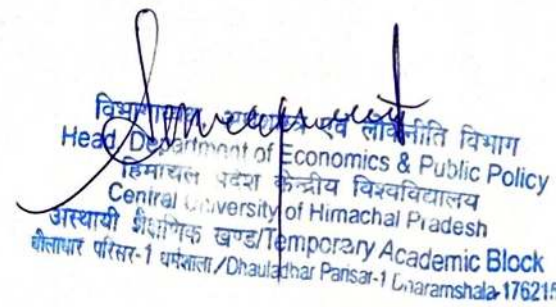 विभागाध्यक्ष एवं लोकनीति विभाग
Head, Department of Economics & Public Policy
हिमाचल प्रदेश केन्द्रीय विश्वविद्यालय
Central University of Himachal Pradesh
अस्थायी शैक्षणिक खण्ड/Temporary Academic Block
धौलाधार परिसर-1 धर्मशाला/Dhauladhar Parisar-1 Dharamshala-176215